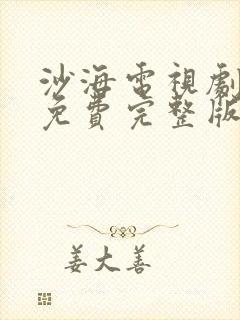 沙海電視劇
免費完整版
姜大善